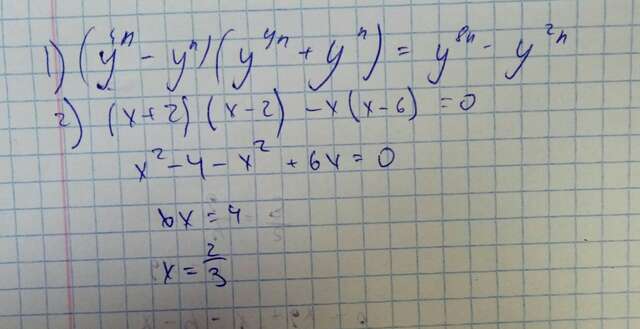 1) (y⁴ⁿ - yⁿ)(y⁴ⁿ + yⁿ) = y⁸ⁿ - y²ⁿ
2) (x+2)(x-2) - x(x-6) = 0
x² - 4 - x² + 6x = 0
6x = 4
x = 2/3